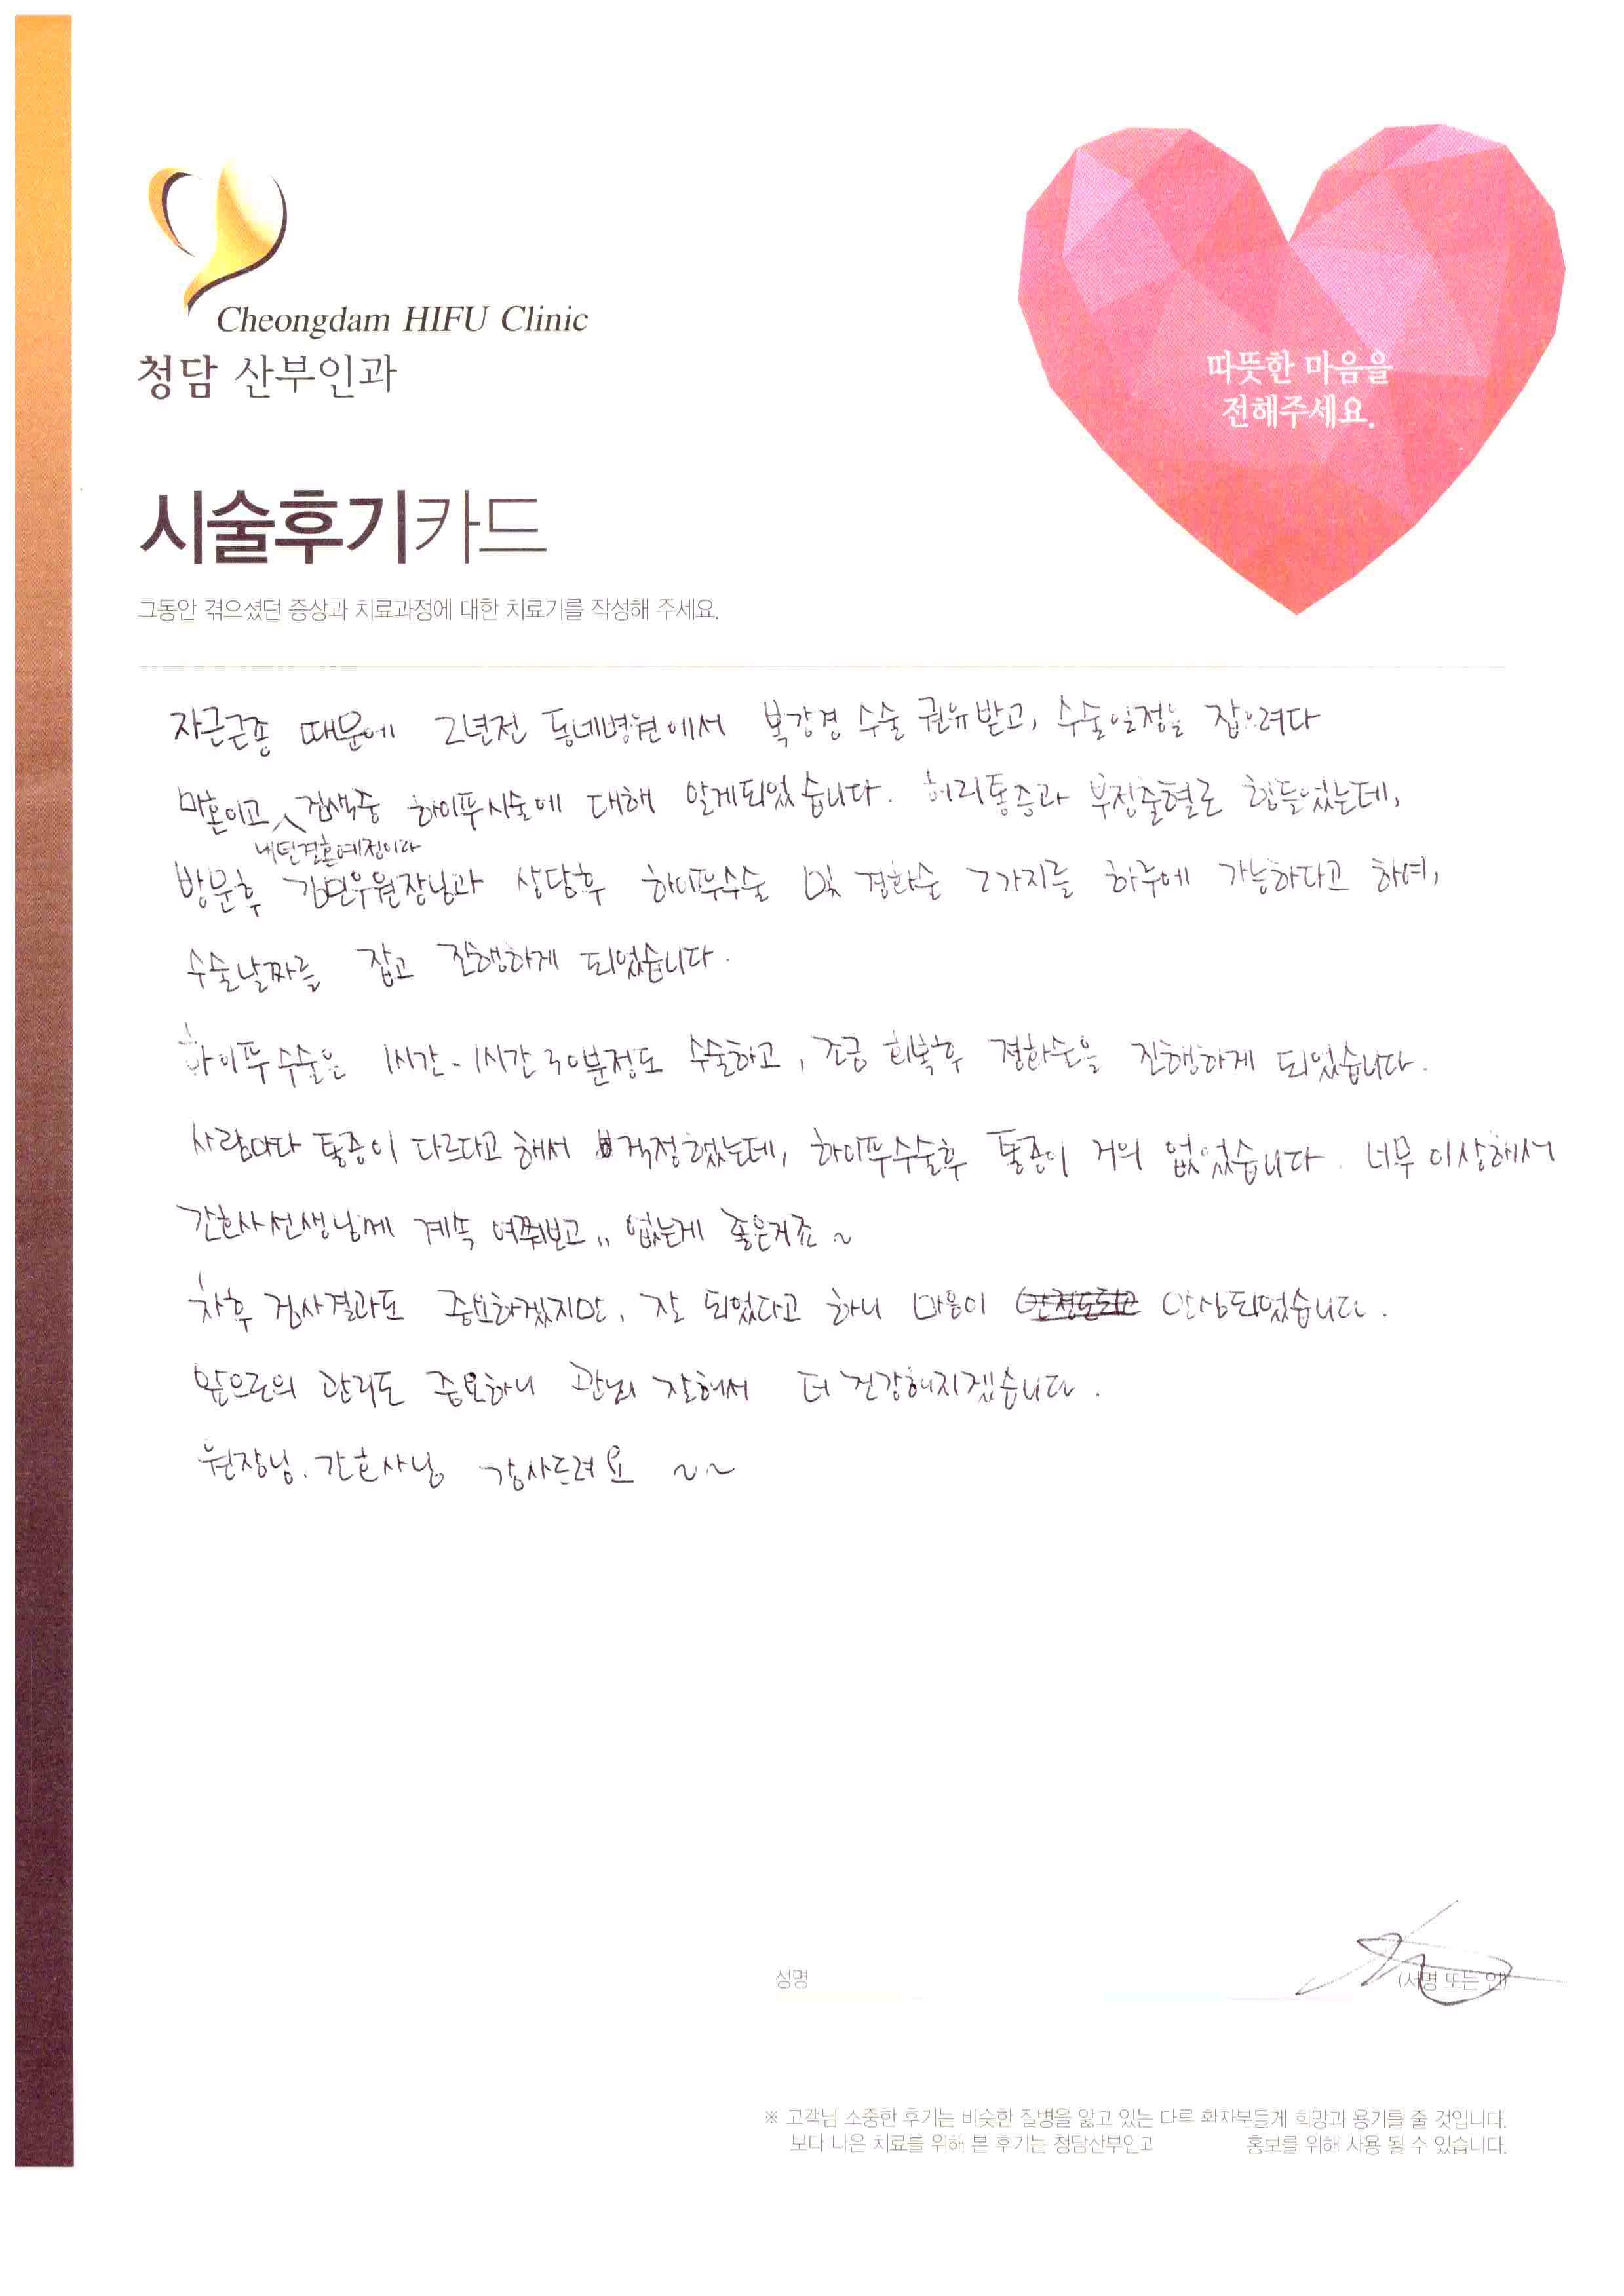 Cheongdam HIFU Clinic
청담 산부인과
따뜻한 마음을
전해주세요.
시술후기카드
그동안 겪으셨던 증상과 치료과정에 대한 치료기를 작성해 주세요.
자근근종 때문에 2년전 동네병원에서 복강경 수술 권유받고, 수술일정을 잡으려다
미혼이고 검색중 하이푸시술에 대해 알게되었습니다. 허리통증과 부정출혈로 힘들었는데,
내년결혼예정이라
방문후 김민우원장님과 상담후 하이푸수술 및 경화술 2가지를 하루에 가능하다고 하여,
수술날짜를 잡고 진행하게 되었습니다.
하이푸수술은 1시간-1시간30분정도 수술하고, 조금 회복후 경화술을 진행하게 되었습니다.
사람마다 통증이 다르다고 해서 걱정했는데, 하이푸수술후 통증이 거의 없었습니다. 너무 이상해서
간호사선생님께 계속 여쭤보고.. 없는게 좋은거죠~
차후 검사결과도 중요하겠지만, 잘 되었다고 하니 마음이 안심되었습니다.
앞으로의 관리도 중요하니 관리 잘해서 더 건강해지겠습니다.
원장님. 간호사님 감사드려요 ~~
성명
(서명 또는 인)
※ 고객님 소중한 후기는 비슷한 질병을 앓고 있는 다른 환자분들게 희망과 용기를 줄 것입니다.
보다 나은 치료를 위해 본 후기는 청담산부인과 홍보를 위해 사용 될 수 있습니다.